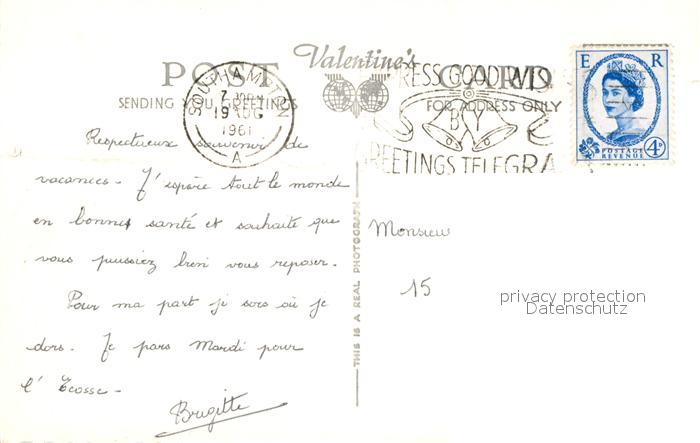 Valentine's
POST CARD
SENDING YOU GREETINGS
FOR ADDRESS ONLY
SOUTHAMPTON
19
1961
A
RESS GOOD WIS
BY
REETINGS TELEGRA
E R
POSTAGE
REVENUE
4D
Respectueux souvenir de
vacances - J'espère tout le monde
en bonnes santé et souhaite que
vous puissiez bien vous reposer.
Pour ma part je sors où je
dors. Je pars Mardi pour
l'Ecosse -
Brigitte
THIS IS A REAL PHOTOGRAPH
Monsieur
15
privacy protection
Datenschutz